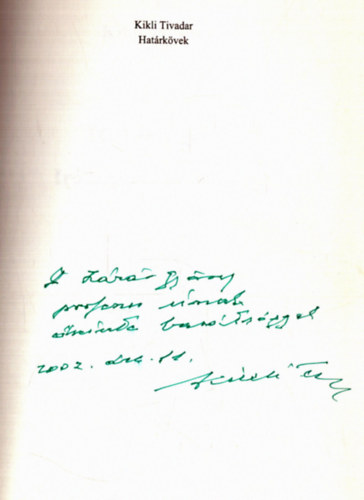 Kikli Tivadar
Határkövek
Lázár György
professzor úrnak
őszinte barátsággal
2002.
Kikli T